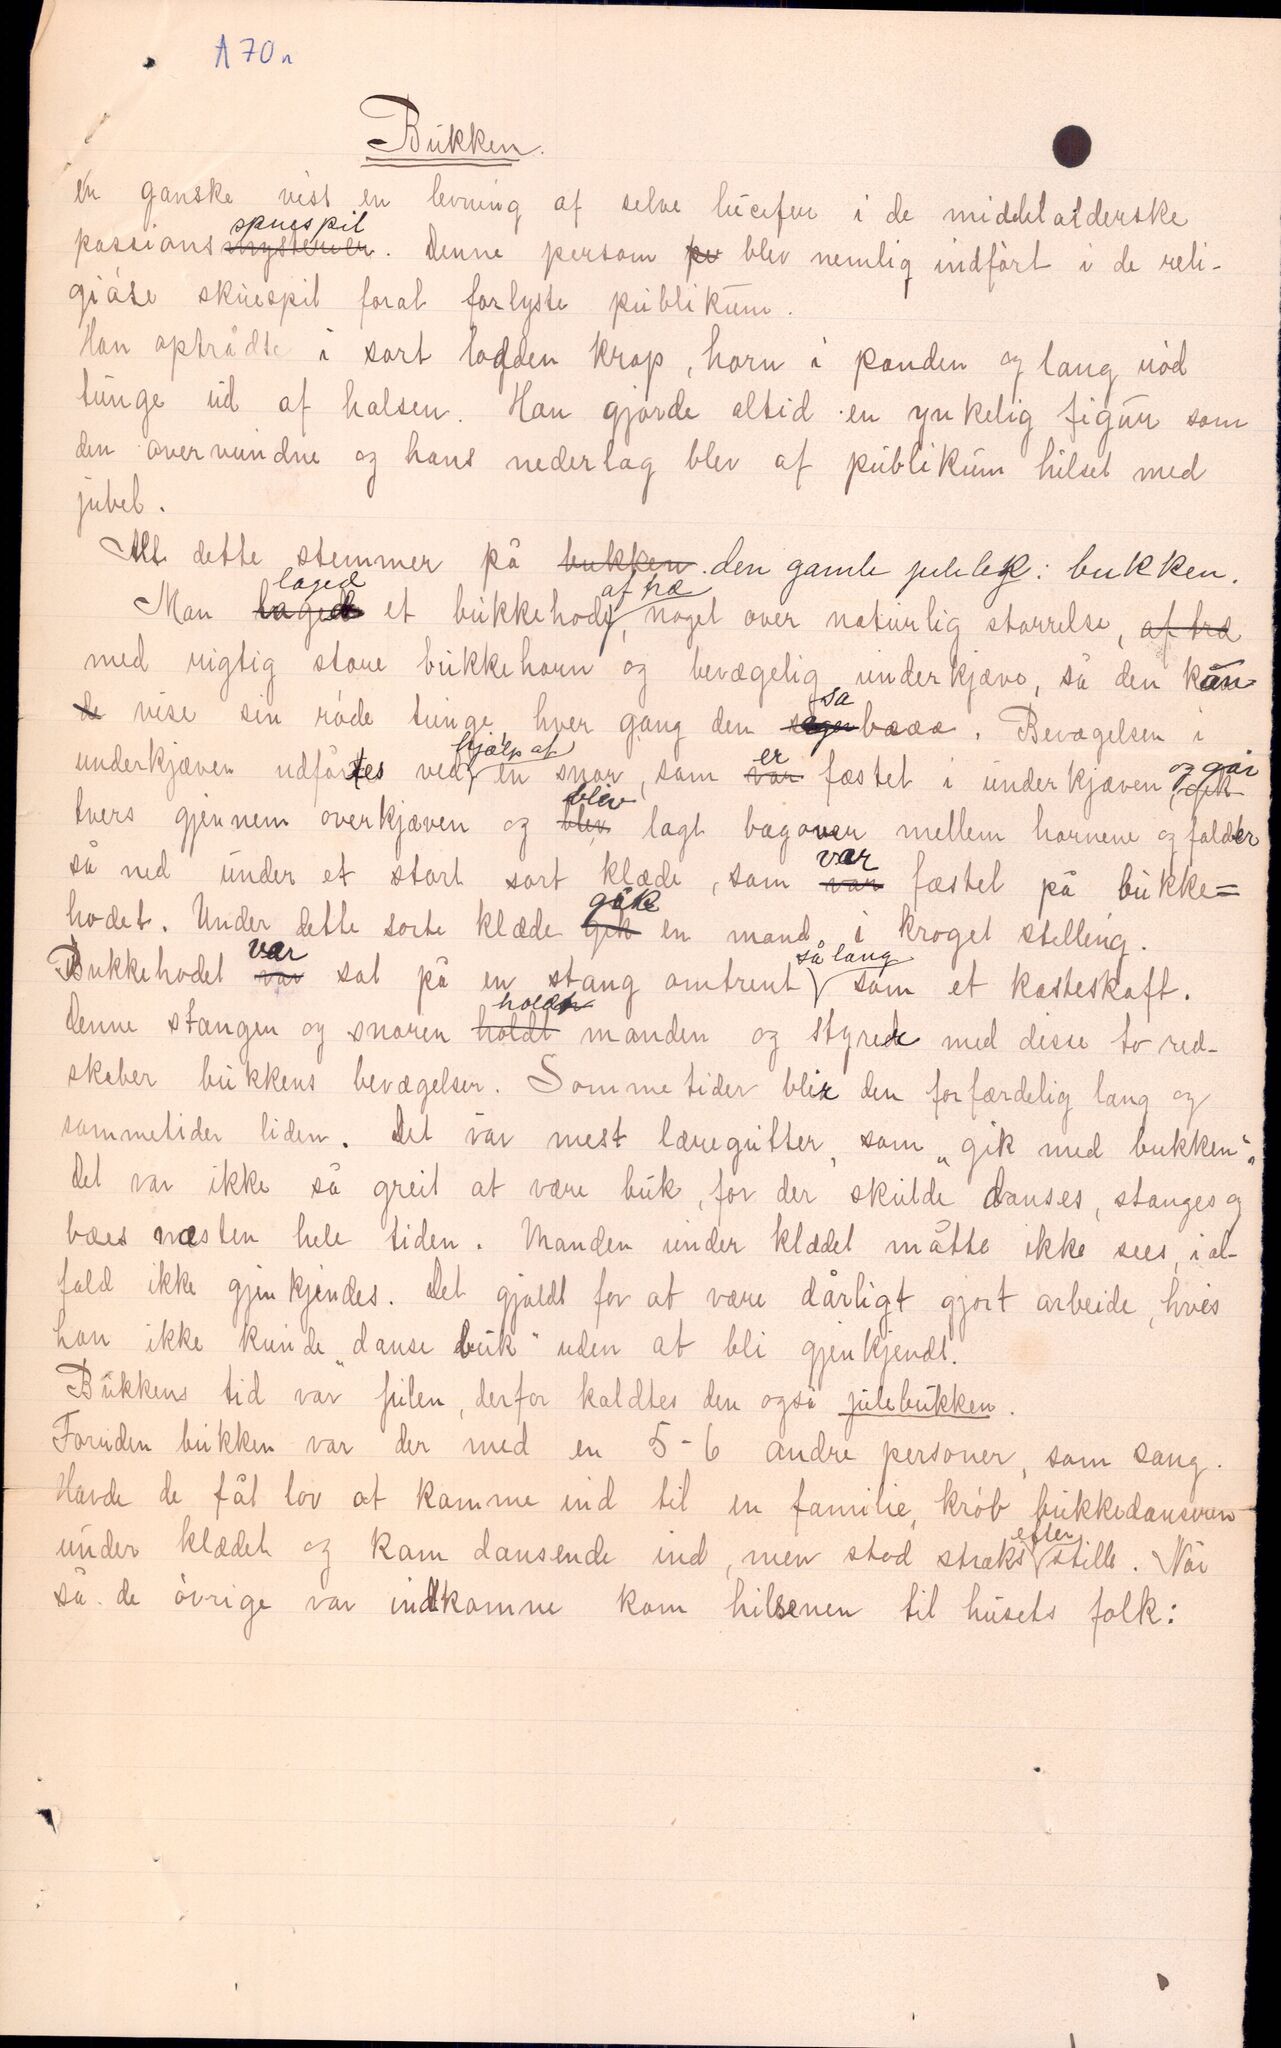 A 70 n
Bukken.
en ganske vist en levning af selve lucifer i de middelalderske
passions mysterier skuespil. Denne person pe blev nemlig indført i de reli-
giøse skuespil forat forlyste publikum.
Han optrådte i sort lodden krop, horn i panden og lang rød
tunge ud af halsen. Han gjorde altid en ynkelig figur som
den overvundne og hans nederlag blev af publikum hilset med
jubel.
Alt dette stemmer på bukken den gamle juleleg: bukken.
laged af træ
Man laged et bukkehode, noget over naturlig størrelse, af træ
med rigtig store bukkehorn og bevægelig underkjæve, så den kun-
sa
de vise sin røde tunge hver gang den sager bæææ. Bevægelsen i
hjælp af er og går
underkjæven udførtes ved en snor, som var fæstet i underkjæven, gik
blev
tvers gjennem overkjæven og blev lagt bagover mellem hornene og falder
var
så ned under et stort sort klæde, som var fæstet på bukke=
gikk
hodet. Under dette sorte klæde gik en mand i kroget stelling.
var så lang
Bukkehodet var sat på en stang omtrent som et kosteskaft.
holdt
Denne stangen og snoren holdt manden og styrede med disse to red-
skaber bukkens bevægelser. Sommetider blir den forfærdelig lang og
sommetider liden. Det var mest læregutter, som „gik med bukken“.
Det var ikke så greit at være buk, for der skulde danses, stanges og
bæes næsten hele tiden. Manden under klædet måtte ikke sees, i al-
fald ikke gjenkjendes. Det gjaldt for at være dårligt gjort arbeide, hvis
han ikke kunde "danse buk" uden at bli gjenkjendt.
Bukkens tid var julen, derfor kaldtes den også julebukken.
Foruden bukken var der med en 5-6 andre personer, som sang.
Havde de fåt lov at komme ind til en familie, krøb bukkedanseren
efter
under klædet og kom dansende ind, men stod straks stille. Når
så de øvrige var indkomne kom hilsenen til husets folk: